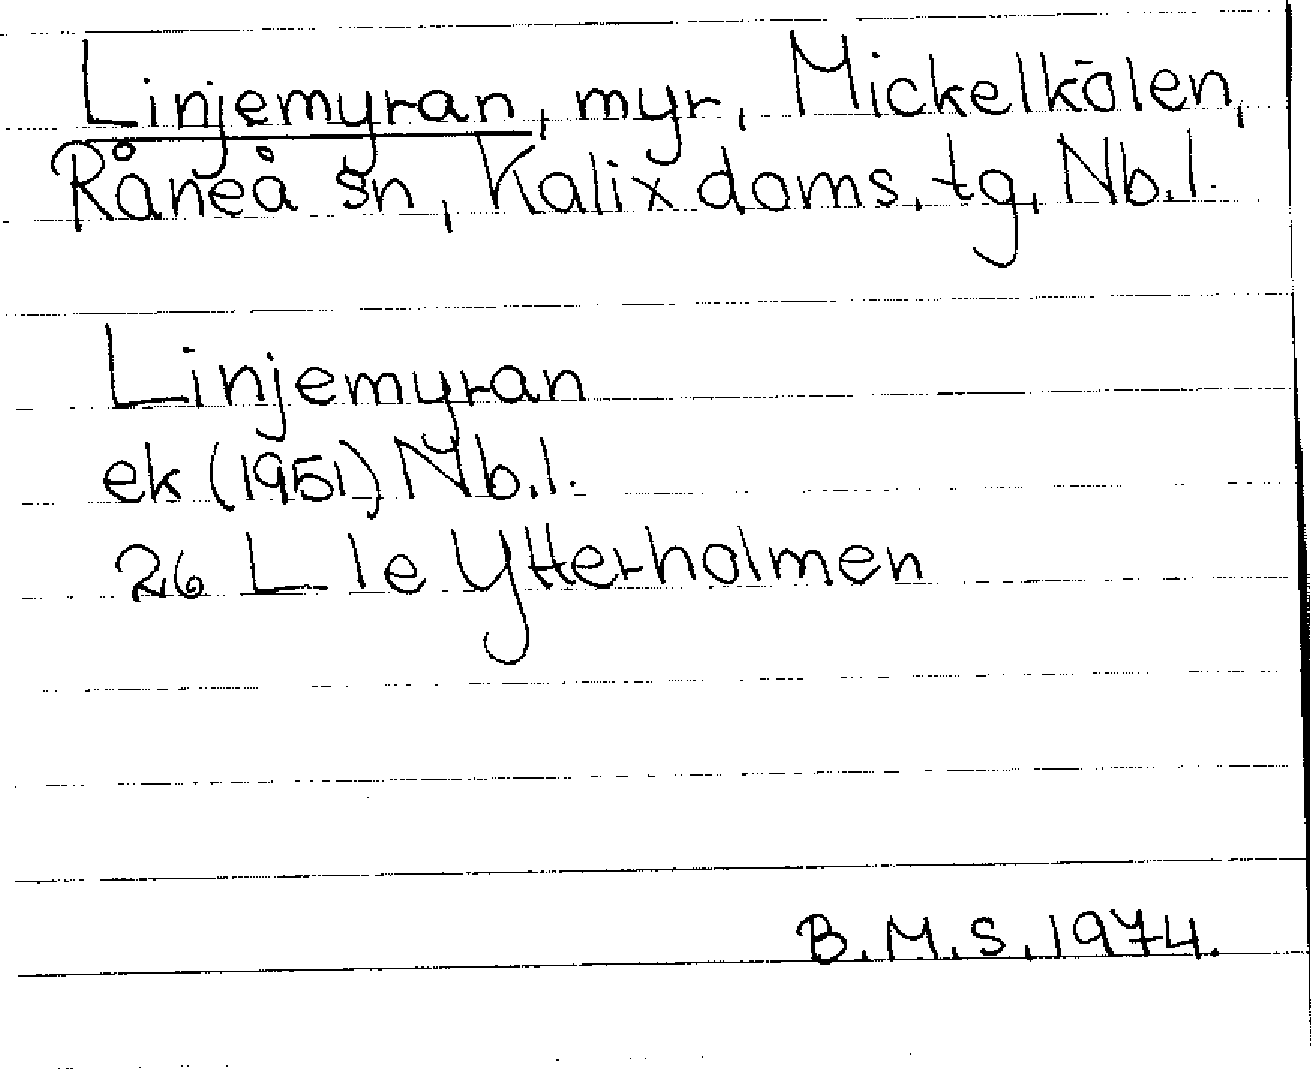 Linjemyran, myr, Mickelkölen,
Råneå sn, Kalix doms. tg, Nb.l.
Linjemyran
ek (1951) Nb.l.
26 L le Ytterholmen
B.M.S. 1974.